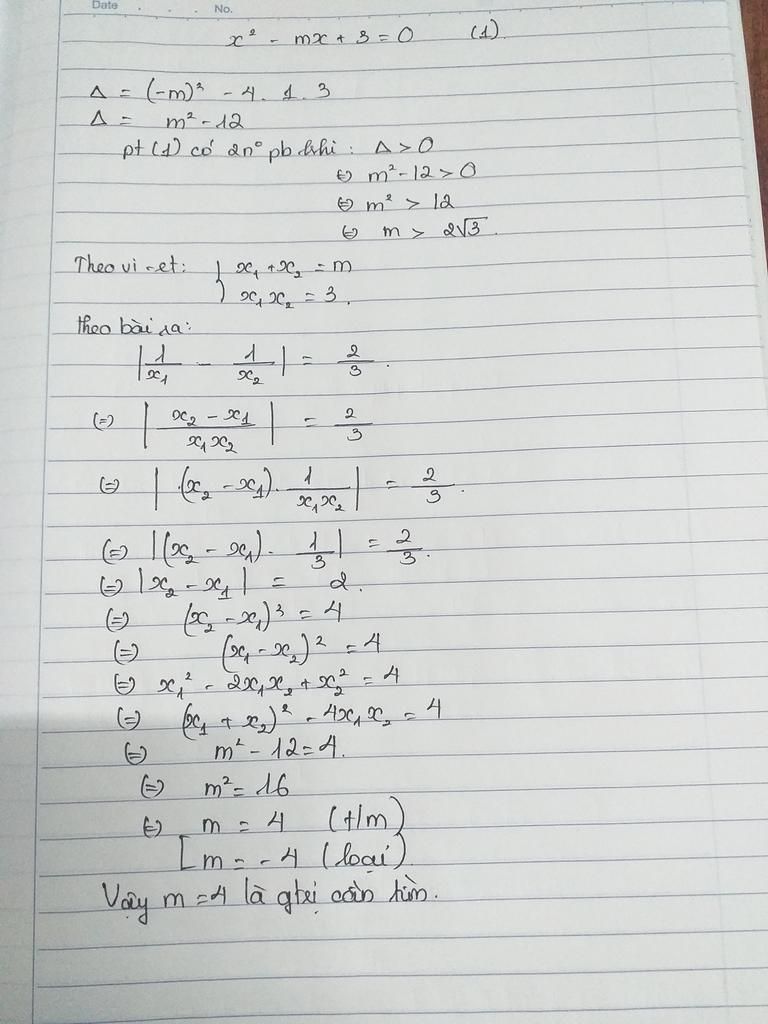 Date . . . No.
x² - mx + 3 = 0 (1)
Δ = (-m)² - 4. 1. 3
Δ = m² - 12
pt (1) có 2n° pb khi : Δ > 0
⇔ m² - 12 > 0
⇔ m² > 12
⇔ m > 2√3
Theo vi-et: { x₁ + x₂ = m
x₁x₂ = 3.
theo bài ra:
|1/x₁ - 1/x₂| = 2/3.
(=) |(x₂ - x₁)/(x₁x₂)| = 2/3
⇔ |(x₂ - x₁). 1/(x₁x₂)| = 2/3.
(=) |(x₂ - x₁). 1/3| = 2/3.
⇔ |x₂ - x₁| = 2.
(=) (x₂ - x₁)² = 4
(=) (x₁ - x₂)² = 4
⇔ x₁² - 2x₁x₂ + x₂² = 4
(=) (x₁ + x₂)² - 4x₁x₂ = 4
⇔ m² - 12 = 4.
⇔ m² = 16
⇔ m = 4 (t/m)
[ m = -4 (loại)
Vậy m = 4 là gtrị cần tìm.